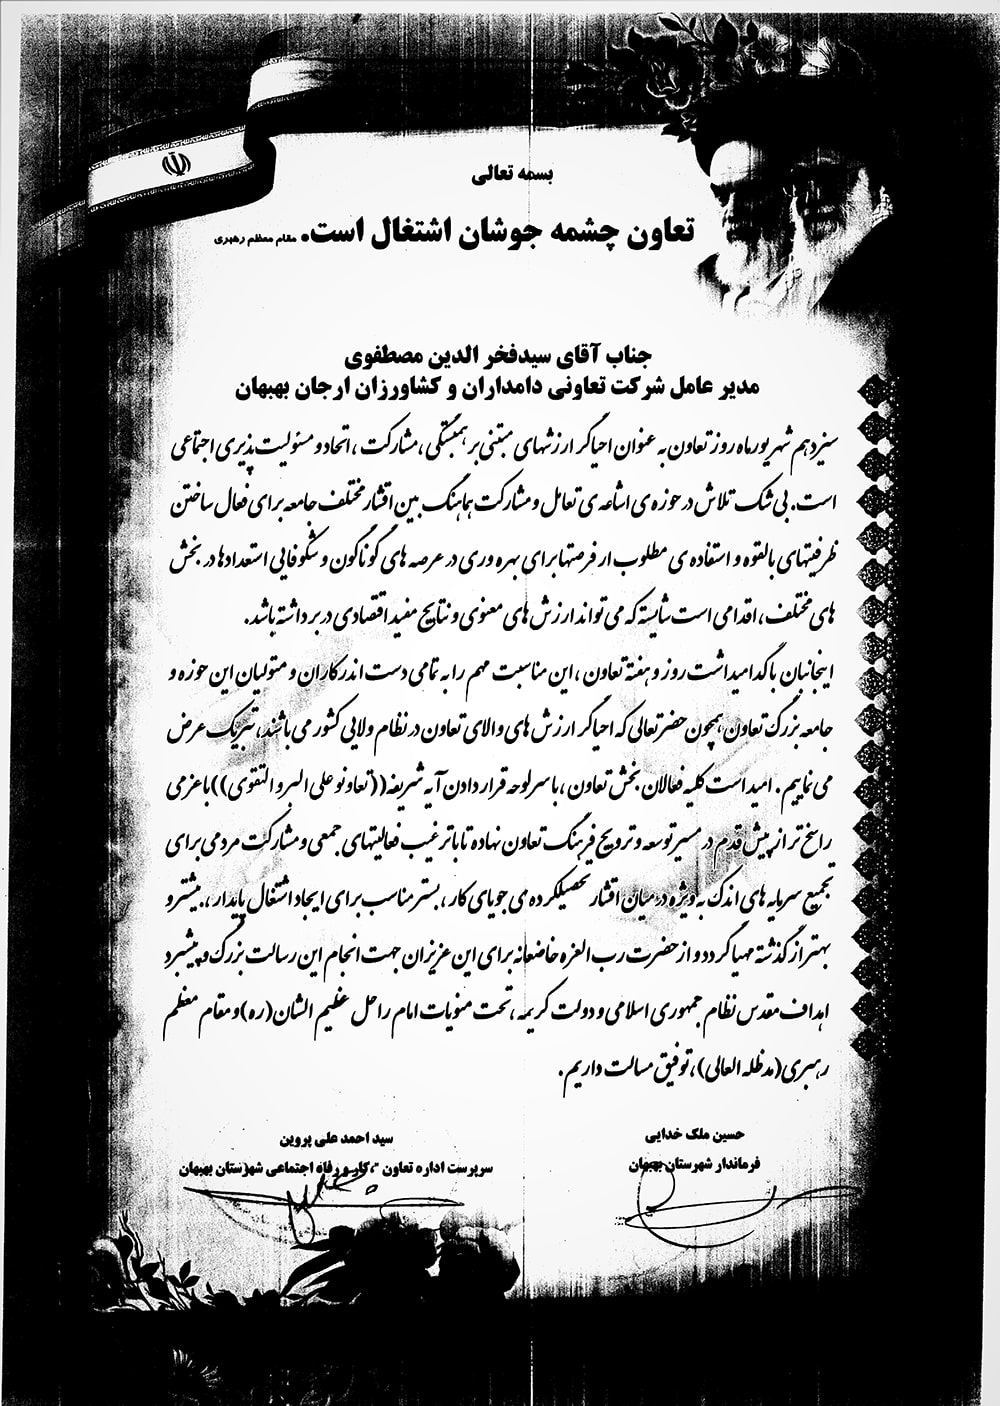 بسمه تعالی
تعاون چشمه جوشان اشتغال است. مقام معظم رهبری
جناب آقای سیدفخر الدین مصطفوی
مدیر عامل شرکت تعاونی دامداران و کشاورزان ارجان بهبهان
سیزدهم شهریورماه روز تعاون به عنوان احیاگر ارزشهای مبتنی بر همبستگی، مشارکت، اتحاد و مسئولیت پذیری اجتماعی
است. بی شک تلاش در حوزه ی اشاعه ی تعامل و مشارکت هماهنگ بین اقشار مختلف جامعه برای فعال ساختن
ظرفیتهای بالقوه و استفاده ی مطلوب از فرصتها برای بهره وری در عرصه های گوناگون و شکوفایی استعدادها در بخش
های مختلف، اقدامی است شایسته که می تواند ارزش های معنوی و نتایج مفید اقتصادی در بر داشته باشد.
اینجانبان با گدامیداشت روز و هفته تعاون، این مناسبت مهم را به تمامی دست اندرکاران و متولیان این حوزه و
جامعه بزرگ تعاون همچون حضرتعالی که احیاگر ارزش های والای تعاون در نظام ولایی کشور می باشند، تبریک عرض
می نماییم. امید است کلیه فعالان بخش تعاون، با سرلوحه قرار دادن آیه شریفه ((تعاونو علی البر و التقوی)) با عزمی
راسخ تر از پیش قدم در مسیر توسعه و ترویج فرهنگ تعاون نهاده تا با ترغیب فعالیتهای جمعی و مشارکت مردمی برای
تجمیع سرمایه های اندک به ویژه در میان اقشار تحصیلکرده ی جویای کار، بستر مناسب برای ایجاد اشتغال پایدار، بیشتر و
بهتر از گذشته مهیا گردد و از حضرت رب العزه خاضعانه برای این عزیزان جهت انجام این رسالت بزرگ و پیشبرد
اهداف مقدس نظام جمهوری اسلامی و دولت کریمه، تحت منویات امام راحل عظیم الشان(ره) و مقام معظم
رهبری(مدظله العالی)، توفیق مسالت داریم.
حسین ملک خدایی
فرماندار شهرستان بهبهان
سید احمد علی پروین
سرپرست اداره تعاون، کار و رفاه اجتماعی شهرستان بهبهان